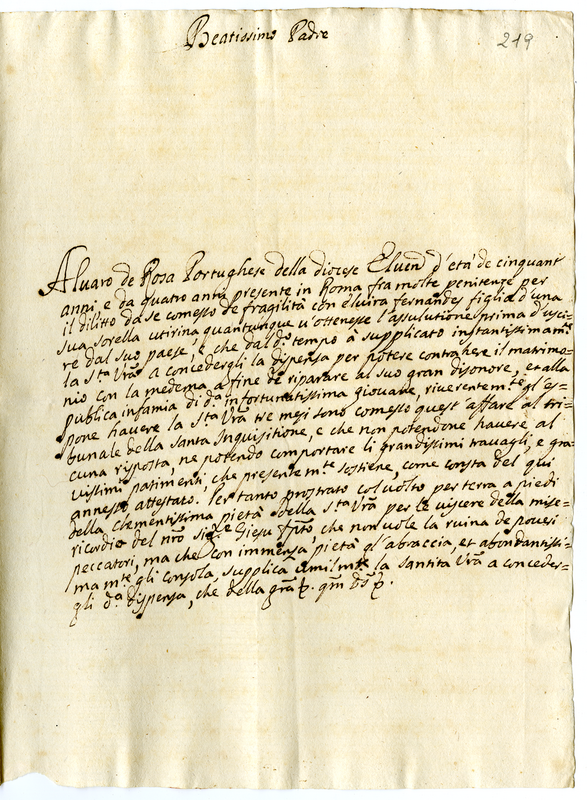 Beatissimo Padre
219
Aluaro de Rosa Portughese della diocese Eluen d'età de cinquant
anni e da quatro anni presente in Roma fra molte penitenze per
il dilitto da se comesso de fragilità con eluira fernandes figlia d'una
sua sorella utirina quantunque u'ottenesse l'assulutione prima d'usci-
re dal suo paese, e che dal do. tempo à supplicato instantissimamte
la Sta. Vra. a concedergli la dispensa per potere contrahere il matrimo-
nio con la medema a fine de riparare al suo gran disonore, et alla
publica infamia di da. infortunatissima giouane, riuerentemte gl'es-
pone hauere la Sta. Vra. tre mesi sono comesso quest'affare al tri-
bunale della Santa Inquisitione, e che non potendone hauere al
cuna risposta, ne potendo comportare li grandissimi trauagli, e gra-
uissimi patimenti che presentemte sostiene, come consta del qui
annesso attestato. Pertanto prostrato col uolto per terra a piedi
della Clementissima pietà della Sta. Vra. per le viscere della mise-
ricordia del nro sigre Giesu Xpto, che non uole la ruina de poueri
peccatori, ma che con immensa pietà gl'abraccia, et abondantissi-
mamte gli consola, supplica umilmte la Santita Vra a conceder-
gli da. dispensa, che della gra